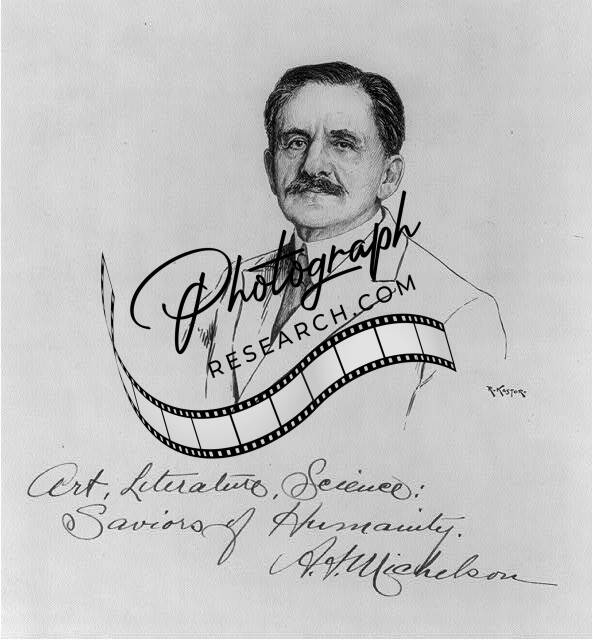 Photograph
RESEARCH.COM
R. KASTOR.
Art, Literature, Science:
Saviors of Humanity.
A. A. Michelson